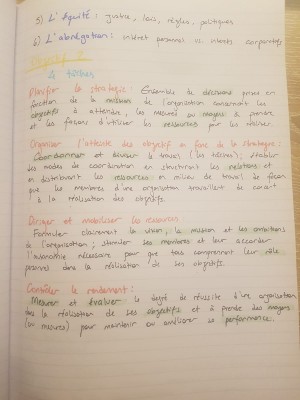 5) L'équité : justice, lois, règles, politiques
6) L'abnégation : intérêt personnel vs intérêts corporatifs
Objectif
4 tâches
Planifier la stratégie : Ensemble de décisions prises en
fonction de la mission de l'organisation concernant les
objectifs à atteindre, les mesures ou moyens à prendre
et les façons d'utiliser les ressources pour les réaliser.
Organiser l'atteinte des objectifs en fonc de la stratégie :
Coordonner et diviser le travail (les tâches); établir
des modes de coordination en structurant les relations et
en distribuant les ressources en milieu de travail de façon
que les membres d'une organisation travaillent de concert
à la réalisation des objectifs.
Diriger et mobiliser les ressources
Formuler clairement la vision, la mission et les ambitions
de l'organisation; stimuler ses membres et leur accorder
l'autonomie nécessaire pour que tous comprennent leur rôle
dans la réalisation de ses objectifs.
Contrôler le rendement :
Mesurer et évaluer le degré de réussite d'une organisation
dans la réalisation de ses objectifs et à prendre des moyens
(ou mesures) pour maintenir ou améliorer sa performance.